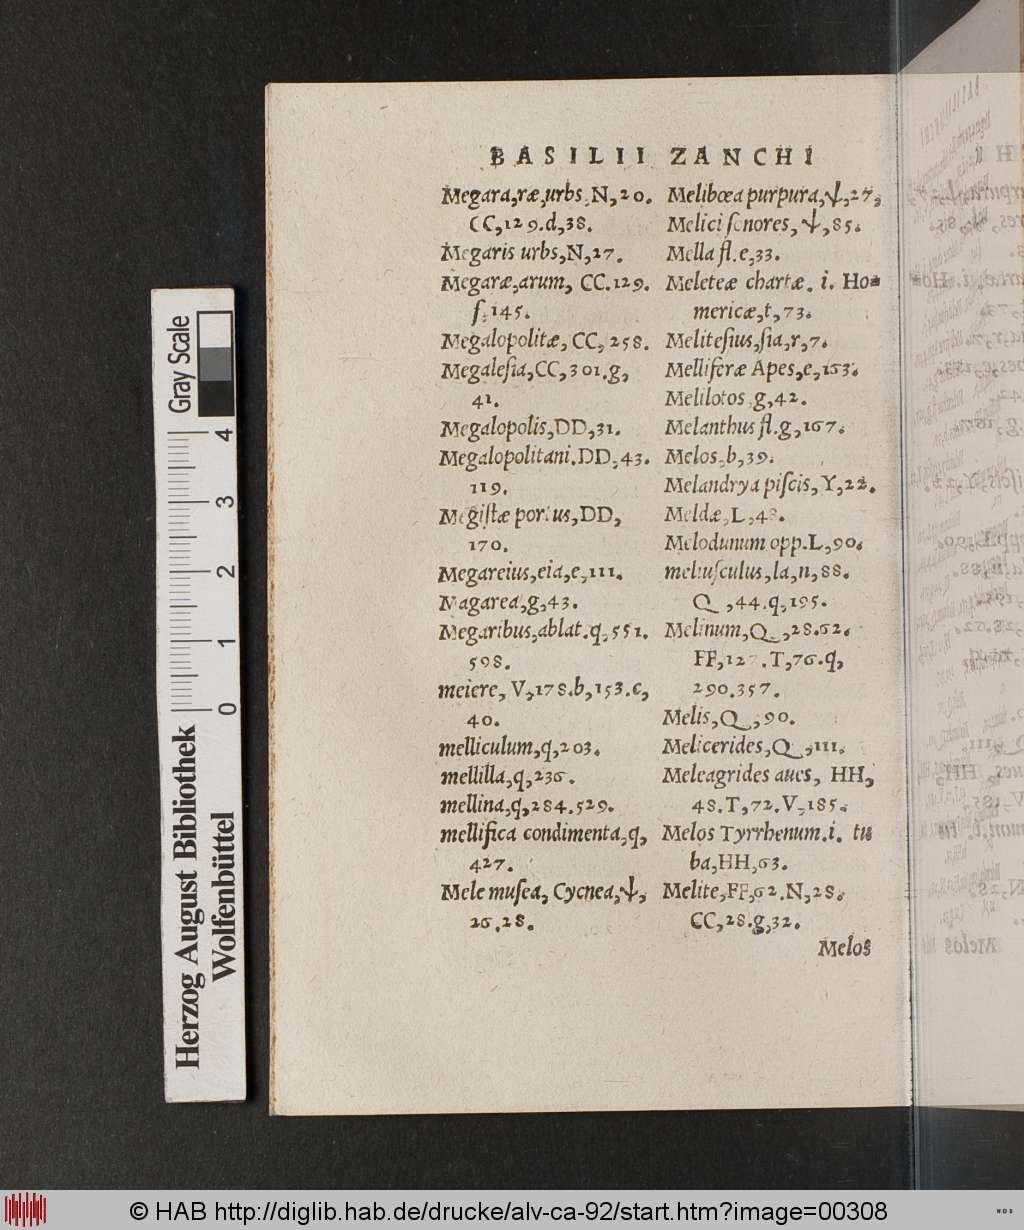 BASILII ZANCHI
Megara,ræ,urbs.N,20.
CC,129.d,38.
Megaris urbs,N,27.
Megaræ,arum, CC.129.
f,145.
Megalopolitæ, CC, 258.
Megaleſia,CC,301.g,
41.
Megalopolis,DD,31.
Megalopolitani.DD,43.
119.
Megiſtæ portus,DD,
170.
Megareius,eia,e,111.
Magarea,g,43.
Megaribus,ablat.q,551.
598.
meiere, V,178.b,153.c,
40.
melliculum,q,203.
mellilla,q,236.
mellina,q,284.529.
mellifica condimenta,q,
427.
Mele muſea, Cycnea,ψ,
26.28.
Melibœa purpura,ψ,27,
Melici ſonores, ψ,85.
Mella fl.e,33.
Meleteæ chartæ. i. Ho-
mericæ,t,73.
Meliteſius,ſia,r,7.
Melliferæ Apes,e,153.
Melilotos g,42.
Melanthus fl.g,167.
Melos,b,39.
Melandrya piſcis, Y,22.
Meldæ,L,48.
Melodunum opp.L,90.
meliuſculus,la,n,88.
Q,44.q,195.
Melinum,Q,28.62.
FF,127.T,76.q,
290.357.
Melis,Q,90.
Melicerides,Q,111.
Meleagrides aues, HH,
48.T,72.V,185.
Melos Tyrrhenum.i. tu
ba,HH,63.
Melite,FF,62.N,28.
CC,28.g,32.
Melos
Gray Scale
0 1 2 3 4
Herzog August Bibliothek
Wolfenbüttel
© HAB http://diglib.hab.de/drucke/alv-ca-92/start.htm?image=00308
WDB